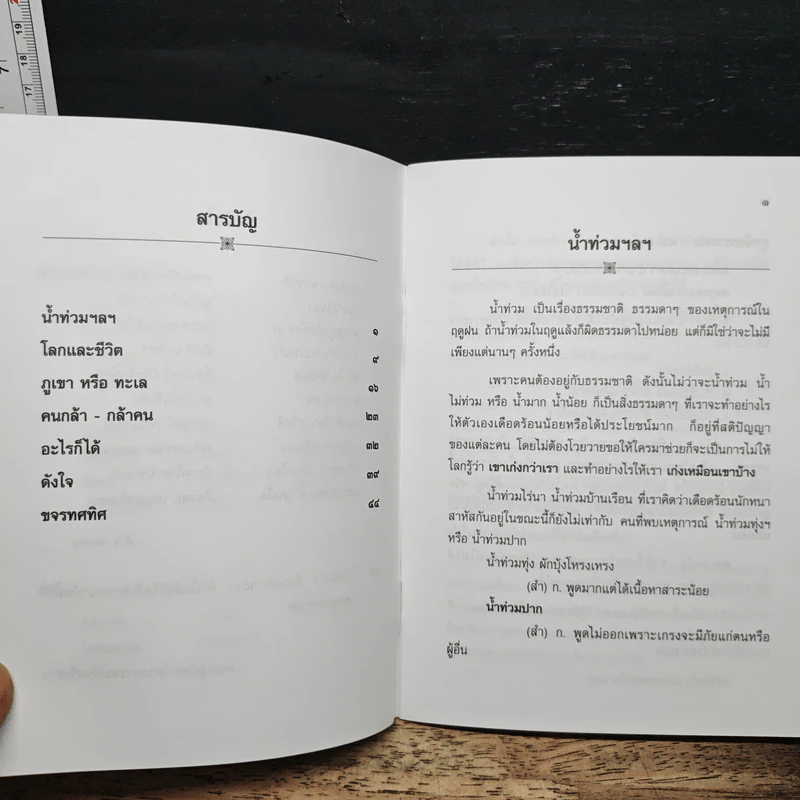 สารบัญ
น้ำท่วมฯลฯ ๑
โลกและชีวิต ๙
ภูเขา หรือ ทะเล ๑๖
คนกล้า - กล้าคน ๒๓
อะไรก็ได้ ๓๒
ดังใจ ๓๙
ขจรทศทิศ ๔๔
๑
น้ำท่วมฯลฯ
น้ำท่วม เป็นเรื่องธรรมชาติ ธรรมดาๆ ของเหตุการณ์ใน
ฤดูฝน ถ้าน้ำท่วมในฤดูแล้งก็ผิดธรรมดาไปหน่อย แต่ก็มิใช่ว่าจะไม่มี
เพียงแต่นานๆ ครั้งหนึ่ง
เพราะคนต้องอยู่กับธรรมชาติ ดังนั้นไม่ว่าจะน้ำท่วม น้ำ
ไม่ท่วม หรือ น้ำมาก น้ำน้อย ก็เป็นสิ่งธรรมดาๆ ที่เราจะทำอย่างไร
ให้ตัวเองเดือดร้อนน้อยหรือได้ประโยชน์มาก ก็อยู่ที่สติปัญญา
ของแต่ละคน โดยไม่ต้องโวยวายขอให้ใครมาช่วยก็จะเป็นการไม่ให้
โลกรู้ว่า เขาเก่งกว่าเรา และทำอย่างไรให้เรา เก่งเหมือนเขาบ้าง
น้ำท่วมไร่นา น้ำท่วมบ้านเรือน ที่เราคิดว่าเดือดร้อนนักหนา
สาหัสกันอยู่ในขณะนี้ก็ยังไม่เท่ากับ คนที่พบเหตุการณ์ น้ำท่วมทุ่งฯ
หรือ น้ำท่วมปาก
น้ำท่วมทุ่ง ผักบุ้งโหรงเหรง
(สำ) ก. พูดมากแต่ได้เนื้อหาสาระน้อย
น้ำท่วมปาก
(สำ) ก. พูดไม่ออกเพราะเกรงจะมีภัยแก่ตนหรือ
ผู้อื่น
17
18
19